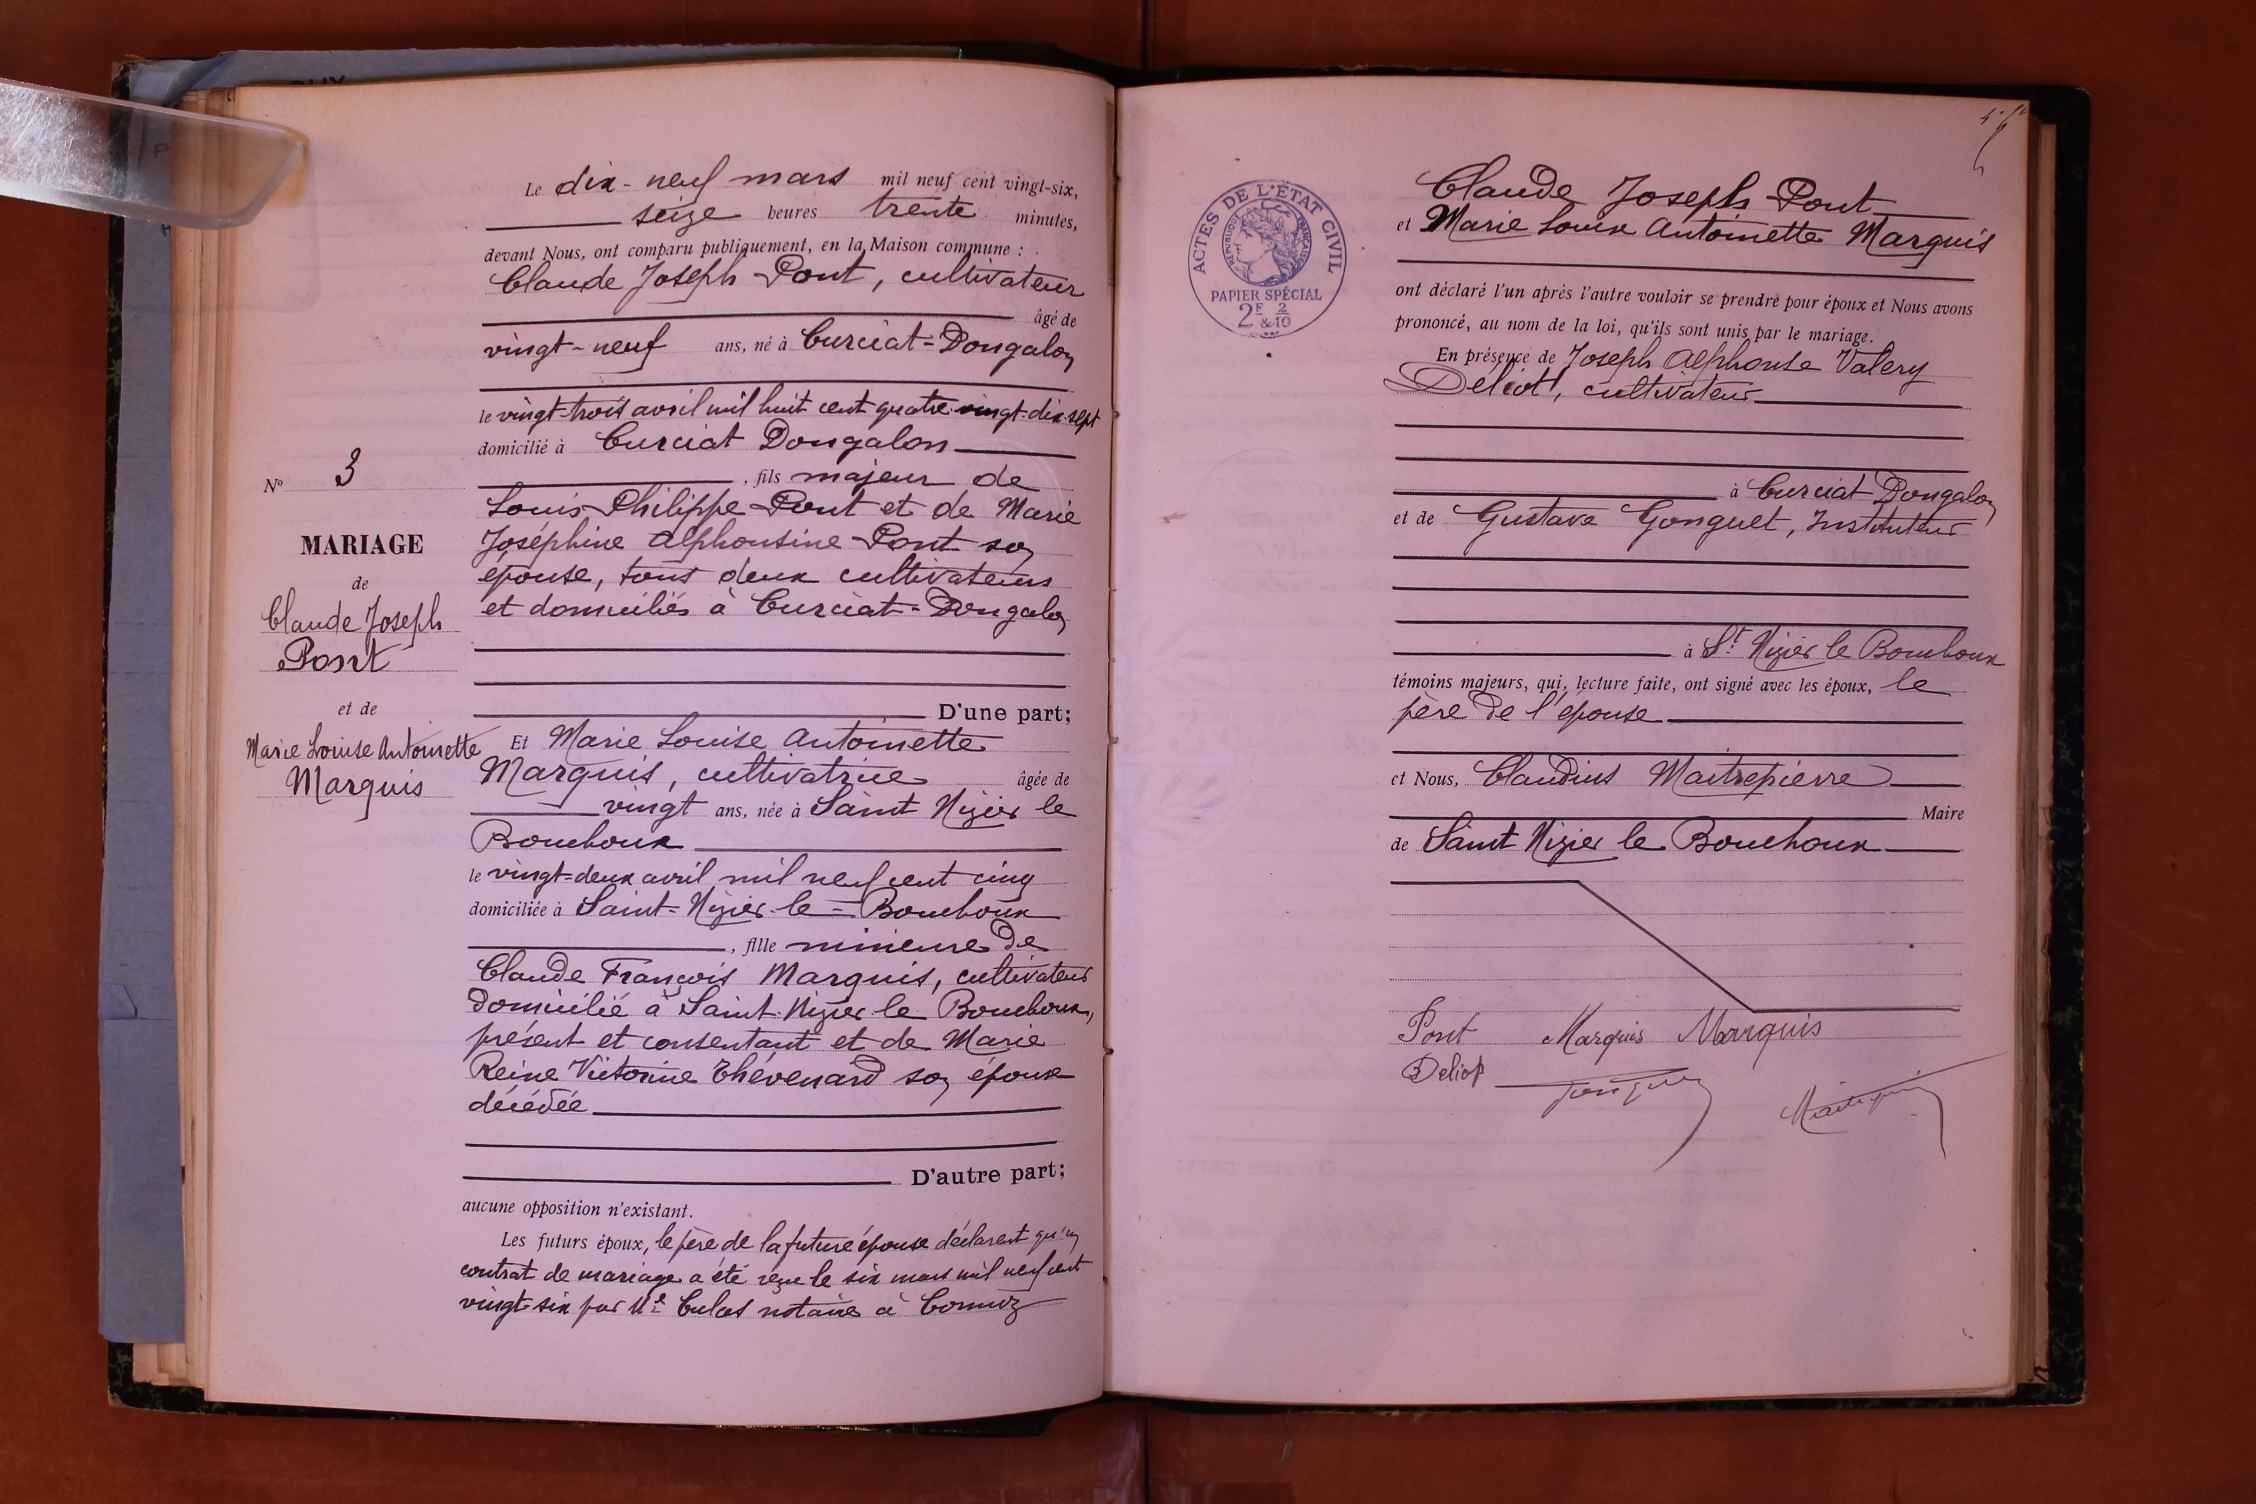 Le dix-neuf mars mil neuf cent vingt-six,
seize heures trente minutes,
devant Nous, ont comparu publiquement, en la Maison commune :
Claude Joseph Pont, cultivateur
âgé de
vingt-neuf ans, né à Curciat-Dongalon
le vingt-trois avril mil huit cent quatre-vingt-dix-sept
domicilié à Curciat Dongalon
, fils majeur de
Louis Philippe Pont et de Marie
Joséphine Alphonsine Pont son
épouse, tous deux cultivateurs
et domiciliés à Curciat-Dongalon
D'une part;
Nº 3
MARIAGE
de
Claude Joseph
Pont
et de
Marie Louise Antoinette
Marquis
Et Marie Louise Antoinette
Marquis, cultivatrice âgée de
vingt ans, née à Saint Nizier le
Bouchoux
le vingt-deux avril mil neuf cent cinq
domiciliée à Saint-Nizier-le-Bouchoux
, fille mineure de
Claude François Marquis, cultivateur
domicilié à Saint-Nizier le Bouchoux,
présent et consentant et de Marie
Reine Victorine Thévenard son épouse
décédée
D'autre part;
aucune opposition n'existant.
Les futurs époux, le père de la future épouse déclarent qu'un
contrat de mariage a été reçu le six mars mil neuf cent
vingt-six par Me notaire à Cormoz
ACTES DE L'ÉTAT CIVIL
RÉPUBLIQUE FRANÇAISE
PAPIER SPÉCIAL
2F & 2/10
Claude Joseph Pont
et Marie Louise Antoinette Marquis
ont déclaré l'un après l'autre vouloir se prendre pour époux et Nous avons
prononcé, au nom de la loi, qu'ils sont unis par le mariage.
En présence de Joseph Alphonse Valery
Deliot, cultivateur
à Curciat Dongalon
et de Gustave Gonguet, Instituteur
à St Nizier le Bouchoux
témoins majeurs, qui, lecture faite, ont signé avec les époux, le
père de l'épouse
et Nous, Claudius Maitrepierre
Maire
de Saint Nizier le Bouchoux
Pont Marquis Marquis
Deliot